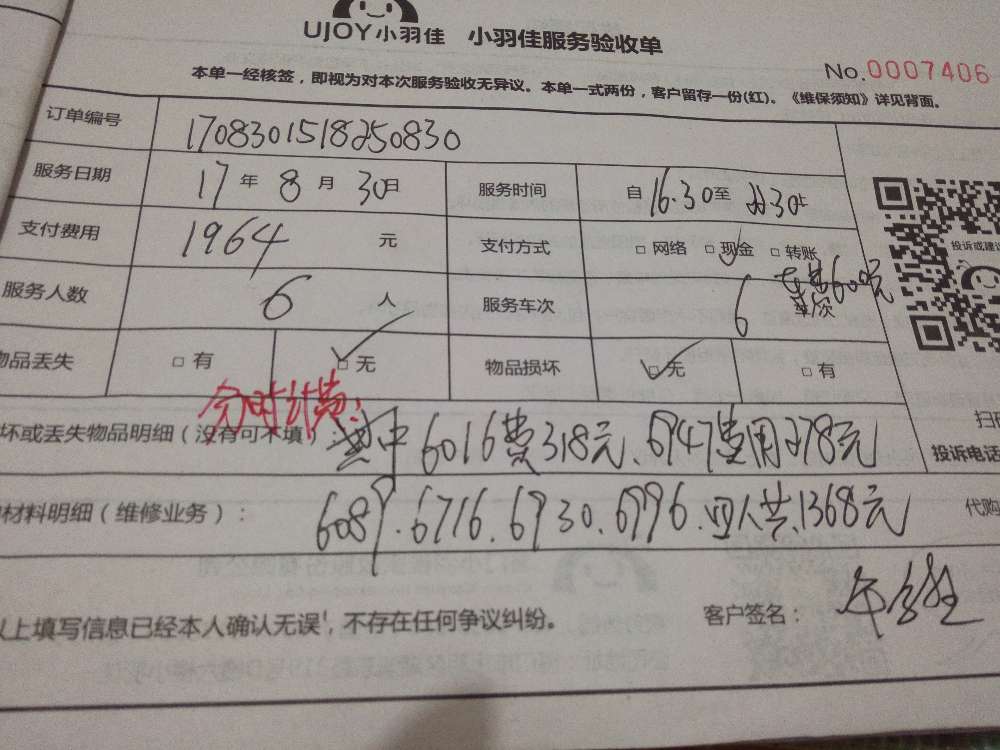 UJOY小羽佳 小羽佳服务验收单
No.0007406
本单一经核签，即视为对本次服务验收无异议。本单一式两份，客户留存一份(红)。《维保须知》详见背面。
订单编号 1708301518250830
服务日期 17年 8月 30日 服务时间 自16.30至
支付费用 1964 元 支付方式 □网络 □现金 □转账
投诉或建议
服务人数 6 人 服务车次 6
600元
物品丢失 □有 □无 物品损坏 □无 □有
分时计费：
坏或丢失物品明细（没有可不填）：其中6016费318元、6947费用278元
扫
投诉电话
材料明细（维修业务）：6089.6716.6930.6996.四人共.1368元
代购
以上填写信息已经本人确认无误，不存在任何争议纠纷。
客户签名：